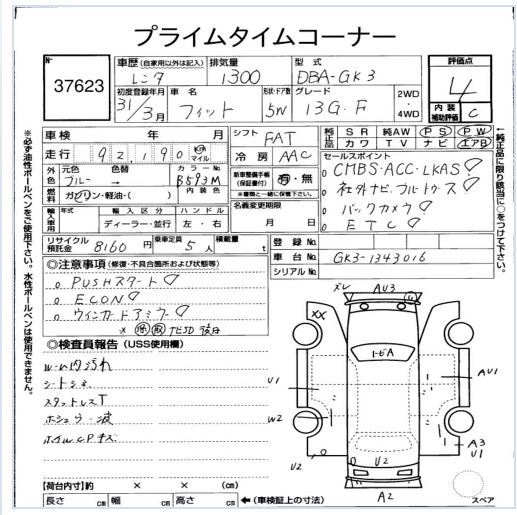 プライムタイムコーナー
№ 37623
車歴 (自家用以外は記入) レンタ
排気量 1300
型式 DBA-GK3
評価点 4
初度登録年月 31年3月
車名 フィット
形状・ドア数 5W
グレード 13G・F
2WD・4WD
内装補助評価 C
車検 年 月
シフト FAT
純正品 SR 純AW PS PW
カワ TV ナビ エアB
走行 92,190 km マイル
冷房 AAC
セールスポイント
CMBS・ACC・LKAS
社外ナビ フルトウス
バックカメラ
ETC
外色 元色 ブルー 色替
カラーNo. B593M
内装色
燃料 ガソリン・軽油・( )
新車整備手帳(保証書付) 有・無
輸入車用 年式 輸入区分 ハンドル
ディーラー・並行 左・右
名義変更期限 月 日
リサイクル預託金 8160円
乗車定員 5人
積載量 t
登録No.
車台No. GK3-1343016
シリアルNo.
◎注意事項 (修復・不具合箇所および状態等)
PUSHスタート
ECON
ウインカードアミラー
◎検査員報告 (USS使用欄)
ルーム内汚れ
スタットレスT
ズレ AU3
XX
U1
W2
U2
AU1
A3
U1
U2
A2
スペア
【荷台内寸】約 × × (cm)
長さ cm 幅 cm 高さ cm ←(車検証上の寸法)
※必ず油性ボールペンをご使用下さい。水性ボールペンは使用できません。
←純正品に限り該当に○をつけて下さい。